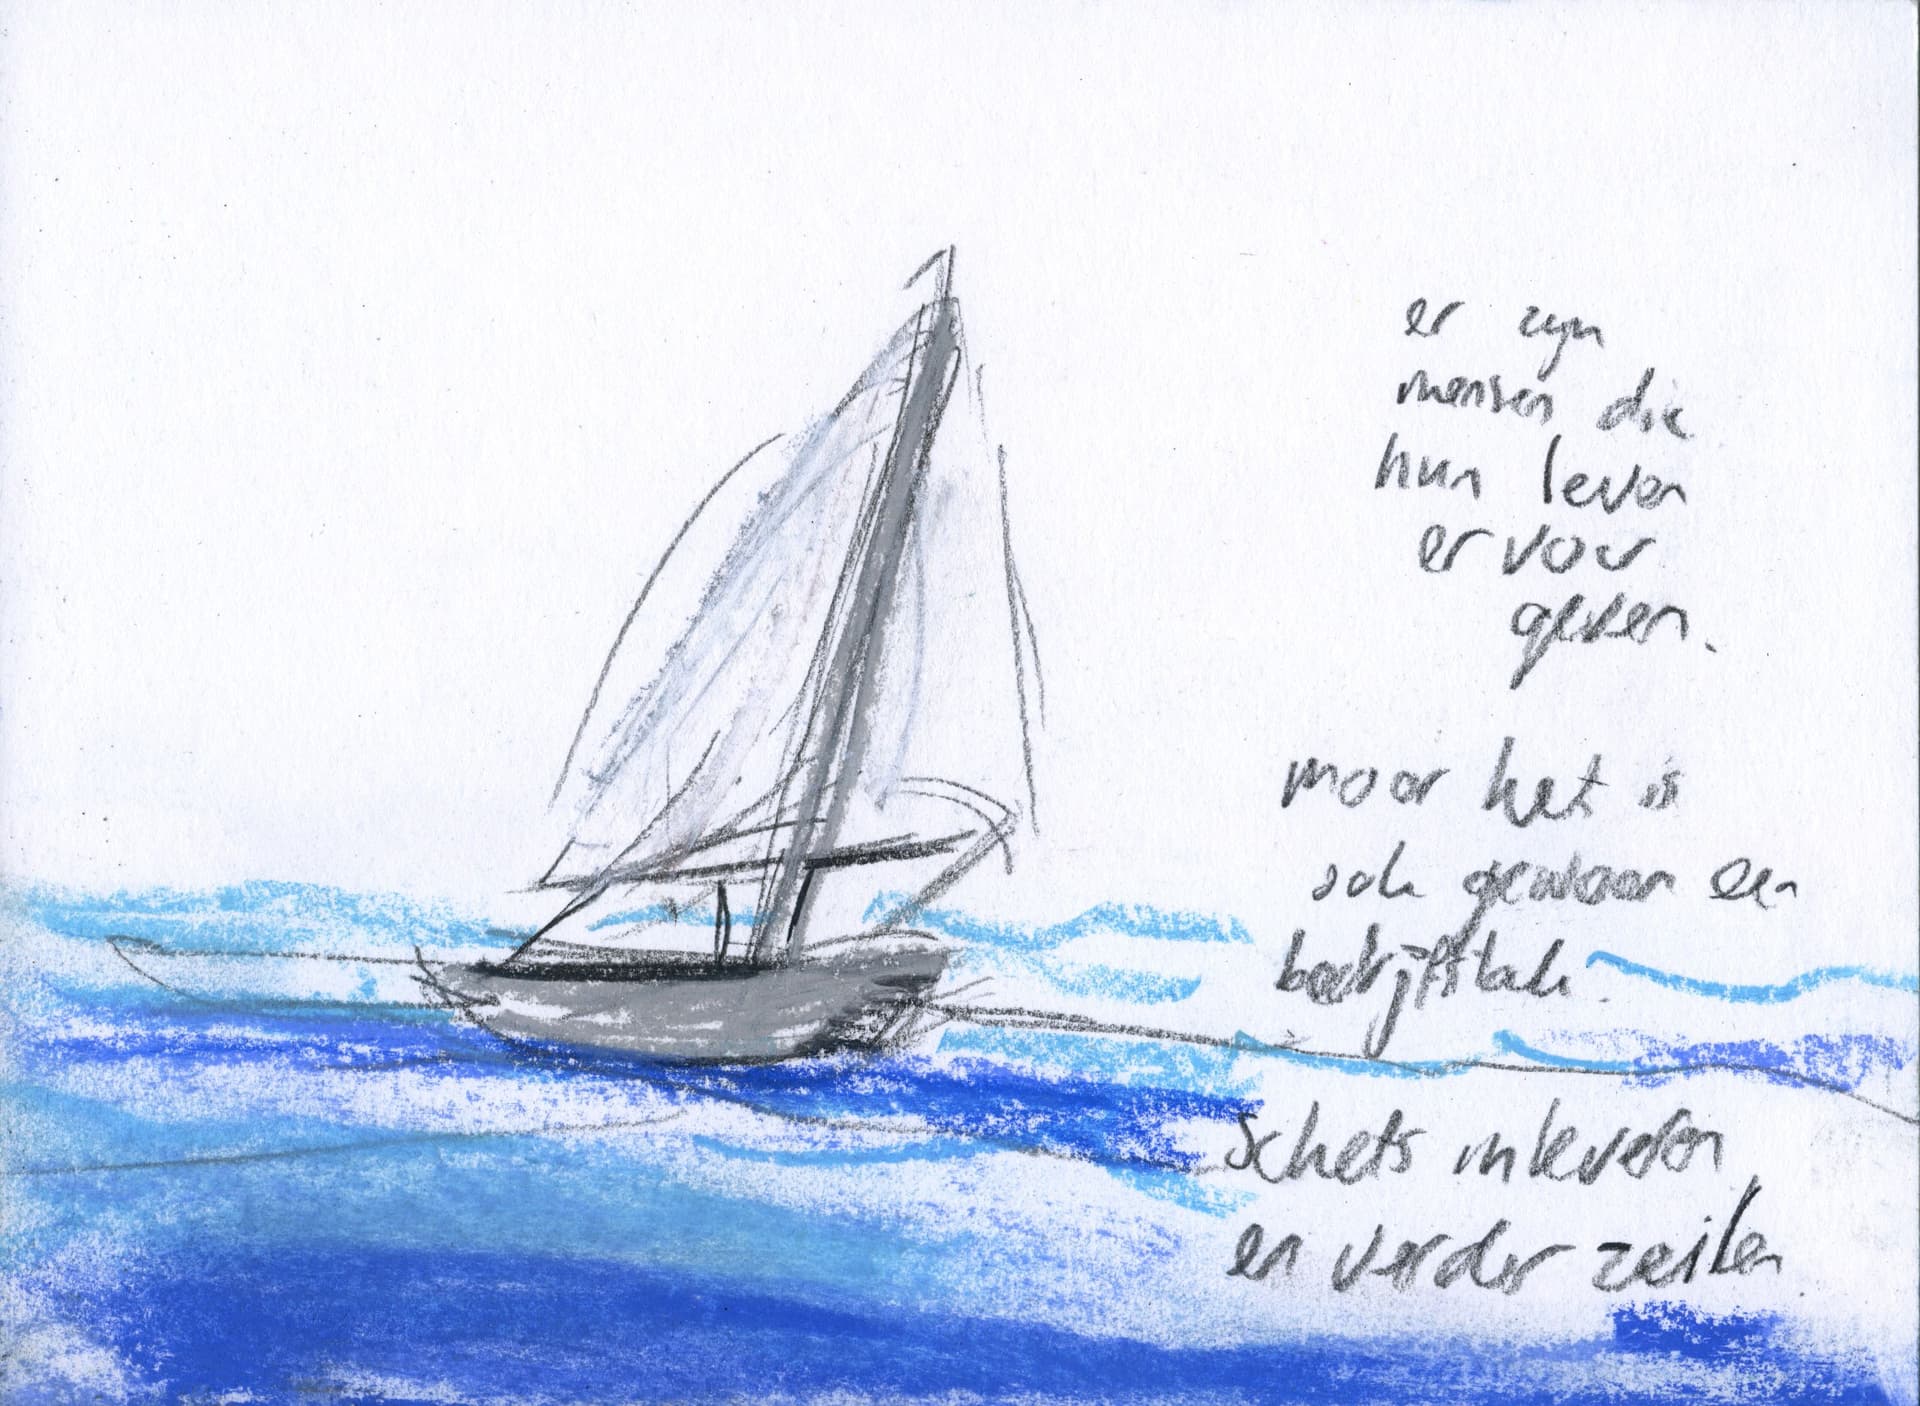 er zijn
mensen die
hun leven
ervoor
geven.
maar het is
ook gewoon een
bedrijfstak.
Schets inleveren
en verder zeilen